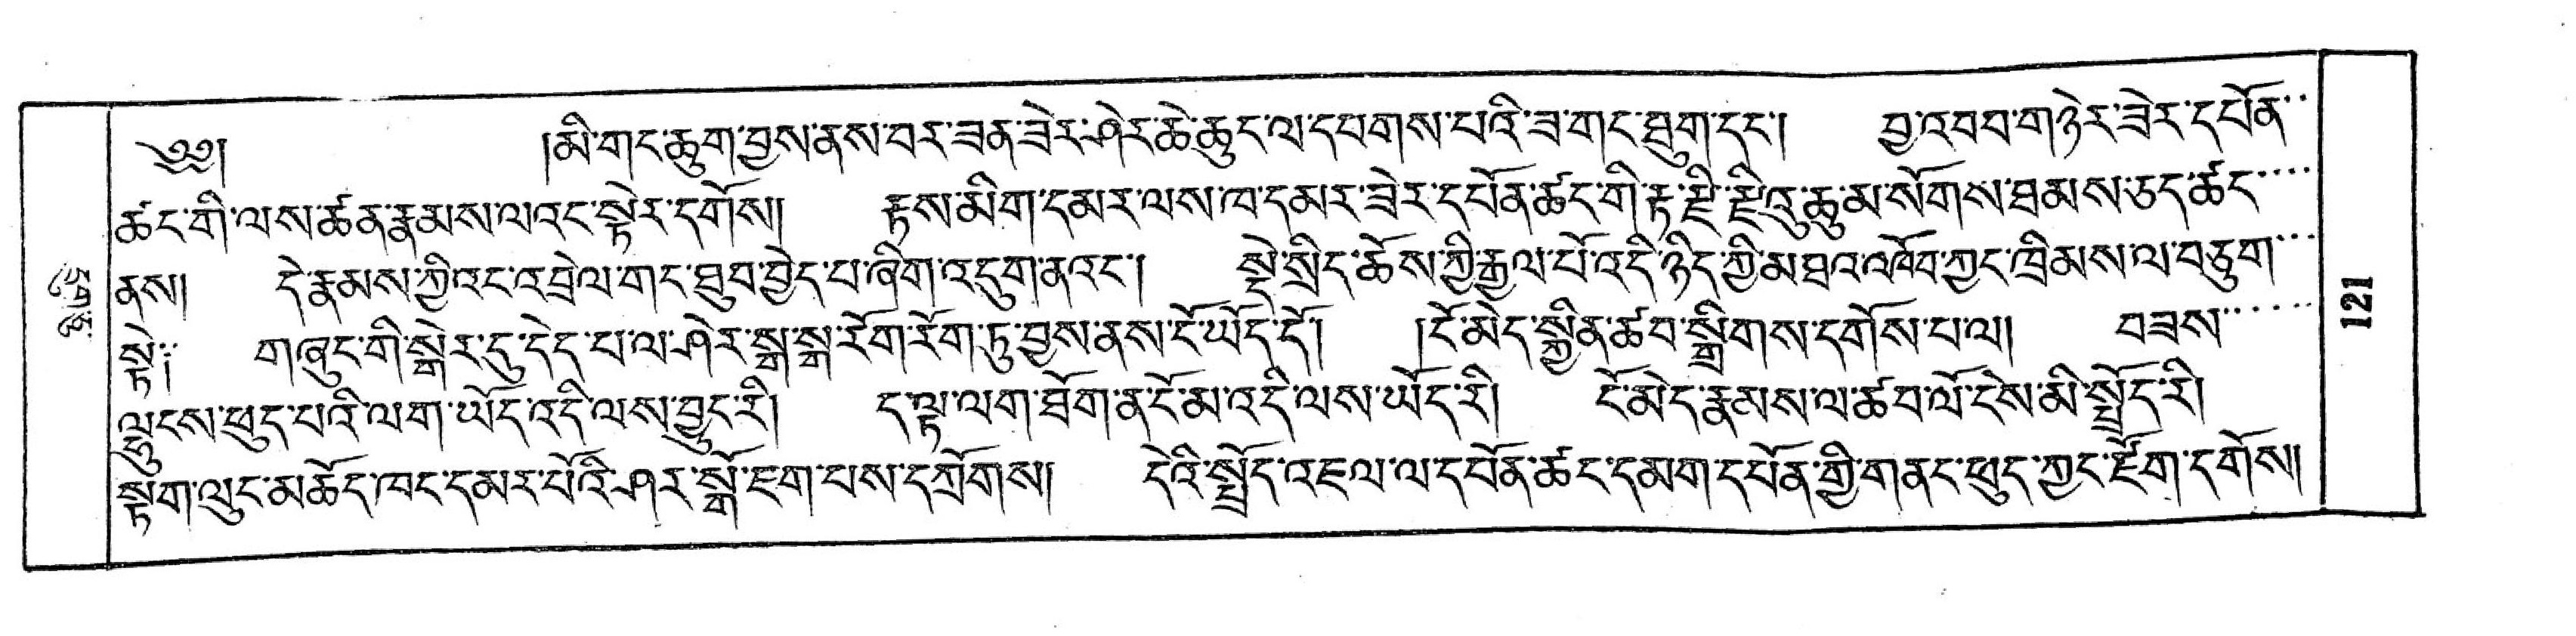 ༄༅། །མི་གང་ཆུག་བྱས་ནས་བར་ཟན་ཟེར་ཤེར་ཆེ་ཆུང་ལ་དཔགས་པའི་ཟ་གང་ཐུག་དང་། བྱ་འབབ་གཉེར་ཟེར་དཔོན་
ཚང་གི་ལས་ཚན་རྣམས་ལའང་སྟེར་དགོས། རྟས་མིག་དམར་ལས་ཁ་དམར་ཟེར་དཔོན་ཚང་གི་རྟ་རྫི་རྫིའུ་ཆུམ་སོགས་ཐམས་ཅད་ཚང་
ནས། དེ་རྣམས་ཀྱིའང་འབྲེལ་གང་ཐུབ་བྱེད་པ་ཞིག་འདུག་ནའང་། སྡེ་སྲིད་ཆོས་ཀྱི་རྒྱལ་པོ་འདི་ཉིད་ཀྱི་མཐའ་འཁོབ་ཀྱང་ཁྲིམས་ལ་བཅུག་
སྟེ། གཞུང་གི་སྒེར་དུ་དེད་པ་ལ་ཤེར་སྒྲ་སྒྲ་རོག་རོག་ཏུ་བྱས་ནས་ངོ་ཡོད་དོ། །ངོ་མེད་སྐྱིན་ཚབ་སྒྲིགས་དགོས་པ་ལ། བཟས་
ལྷུངས་ཕྲུད་པའི་ལག་ཡོད་འདི་ལས་བྱུང་རི། ད་ལྟ་ལག་ཐོག་ན་ངོ་མ་འདི་ལས་ཡོད་རི། ངོ་མེད་རྣམས་ལ་ཚབ་ལོ་ངེས་མི་སྤྲོད་རི།
སྟག་ལུང་མཆོད་ཁང་དམར་པོའི་ཤར་སྒོ་ཇག་པས་དཀྲོགས། དེའི་སྤྲོད་འཇལ་ལ་དཔོན་ཚང་དམག་དཔོན་གྱི་གནང་ཕྲུད་ཀྱང་རྫོག་དགོས།
121